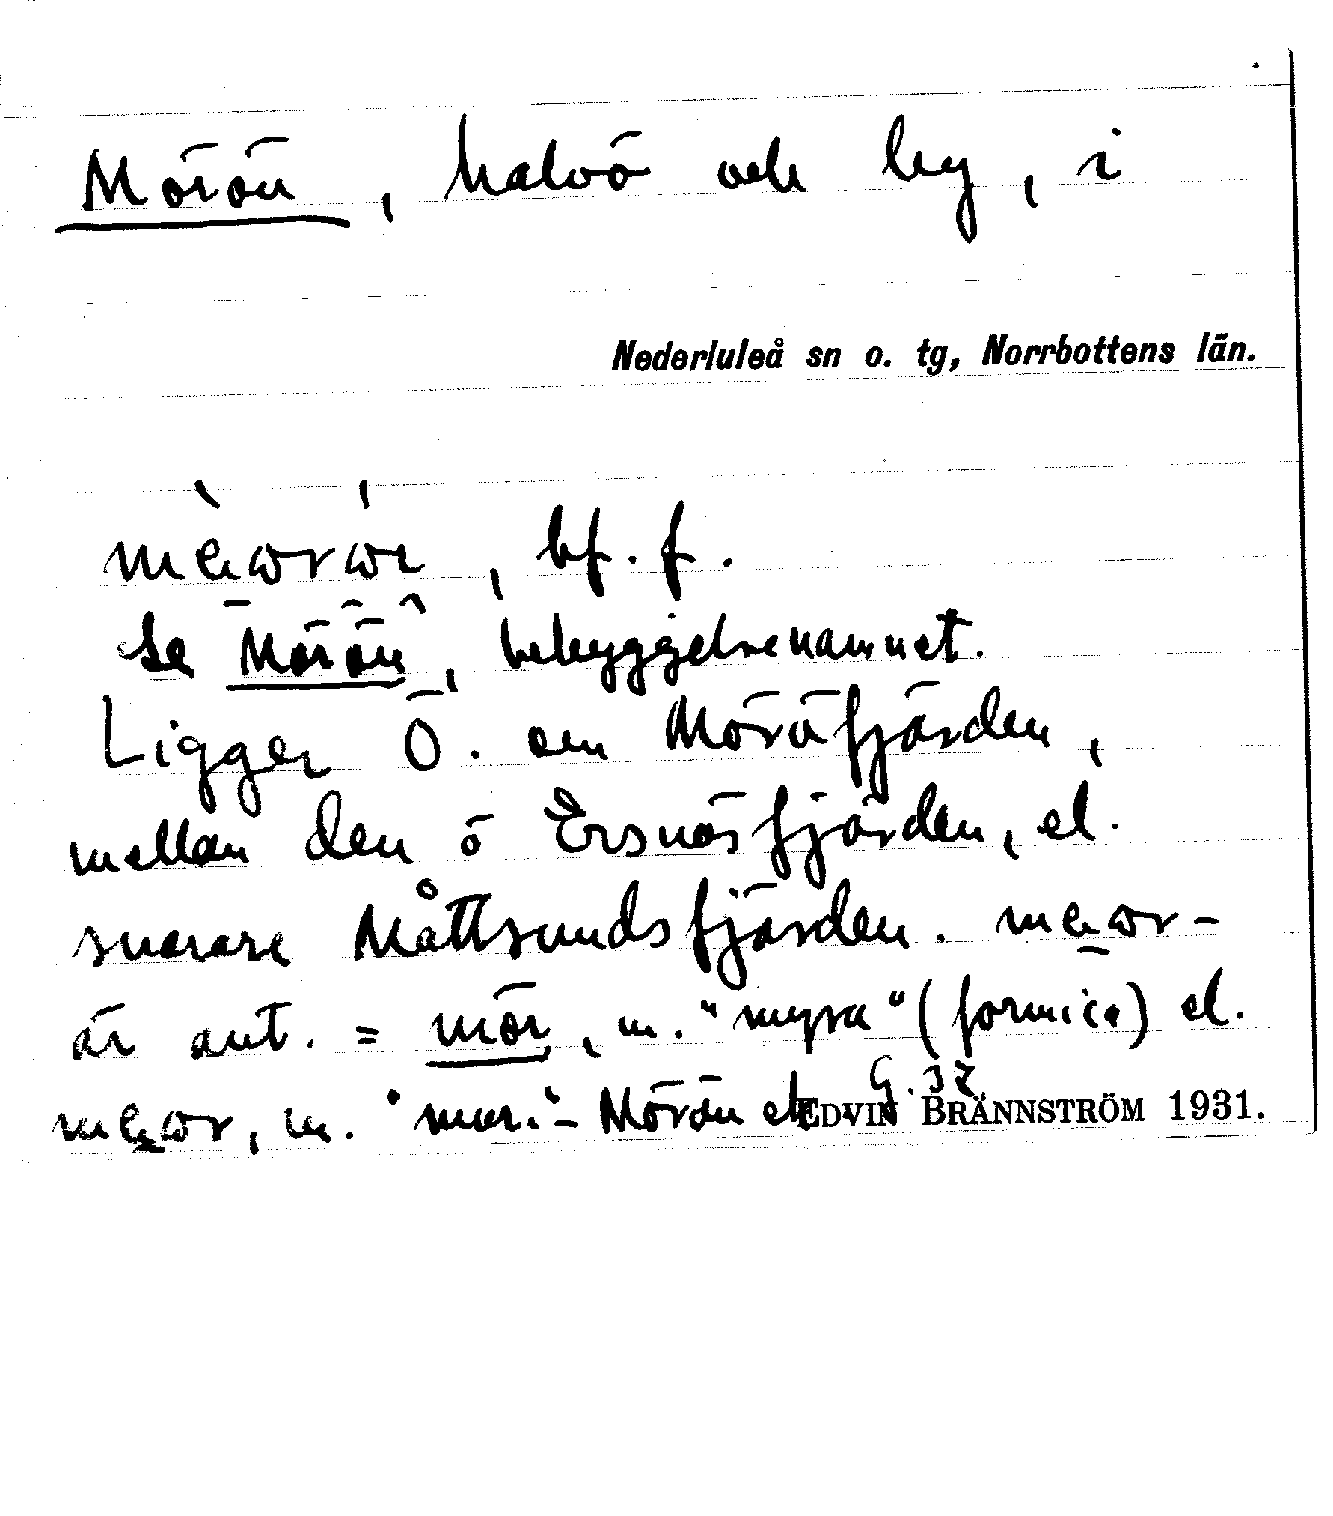 Mörön, halvö och by, i
Nederluleå sn o. tg, Norrbottens län.
bf. f.
Se Mörön, bebyggelsenamnet.
Ligger Ö. om Möröfjärden,
mellan den ö Ersnäsfjärden, el.
snarare Måttsundsfjärden.
är ant. = mör, m. "myra" (formica) el.
m. "mur." - Mörön
G. 37
EDVIN BRÄNNSTRÖM 1931.